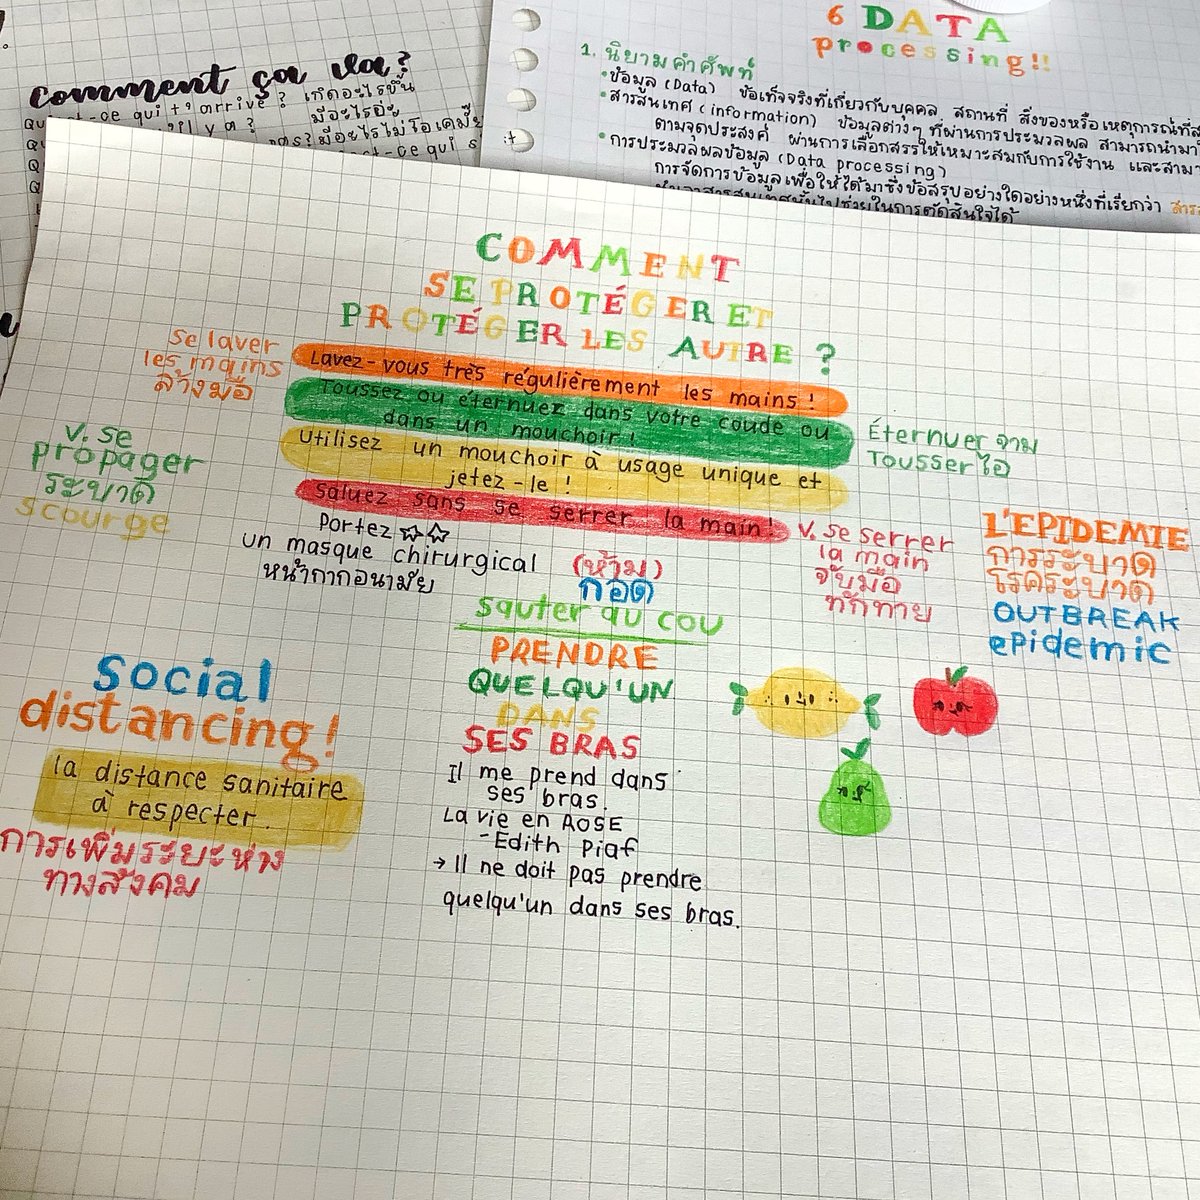 comment ça va?
qui t'arrive? เกิดอะไรขึ้น
มีอะไรอ่ะ
6 DATA
processing!!
1. นิยามคำศัพท์
•ข้อมูล (Data) ข้อเท็จจริงที่เกี่ยวกับบุคคล สถานที่ สิ่งของหรือเหตุการณ์ที่
•สารสนเทศ (information) ข้อมูลต่างๆ ที่ผ่านการประมวลผล สามารถนำมา
ตามจุดประสงค์ ผ่านการเลือกสรรให้เหมาะสมกับการใช้งาน และสามา
•การประมวลผลข้อมูล (Data processing)
การจัดการข้อมูลเพื่อให้ได้มาซึ่งข้อสรุปอย่างใดอย่างหนึ่งที่เรียกว่า
COMMENT
SE PROTÉGER ET
PROTÉGER LES AUTRE ?
se laver
les mains
ล้างมือ
Lavez-vous très régulièrement les mains!
Toussez ou éternuez dans votre coude ou
dans un mouchoir!
Utilisez un mouchoir à usage unique et
jetez-le!
Saluez sans se serrer la main!
Éternuer จาม
Tousser ไอ
v. se
propager
ระบาด
scourge
Portez ☆☆
un masque chirurgical
หน้ากากอนามัย
(ห้าม)
กอด
sauter au cou
v. se serrer
la main
จับมือ
ทักทาย
L'EPIDEMIE
การระบาด
โรคระบาด
OUTBREAK
epidemic
PRENDRE
QUELQU'UN
DANS
SES BRAS
Il me prend dans
ses bras.
La vie en ROSE
- Edith Piaf
→ Il ne doit pas prendre
quelqu'un dans ses bras.
social
distancing!
la distance sanitaire
à respecter.
การเพิ่มระยะห่าง
ทางสังคม